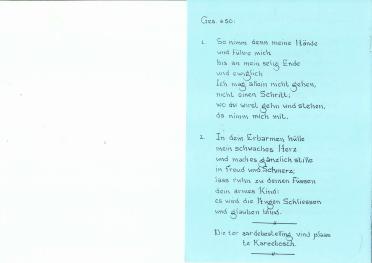 Ges. 250:
1. So nimm denn meine Hände
und führe mich
bis an mein selig Ende
und ewiglich
Ich mag allein nicht gehen,
nicht einen Schritt;
wo du wirst gehn und stehen,
da nimm mich mit.
2. In dein Erbarmen hülle
mein schwaches Herz
und mach es gänzlich stille
in Freud und Schmerz;
lass ruhn zu deinen Füssen
dein armes Kind:
es wird die Augen Schliessen
und glauben blind.
Die ter aardebestelling vind plaas
te Kareebosch.